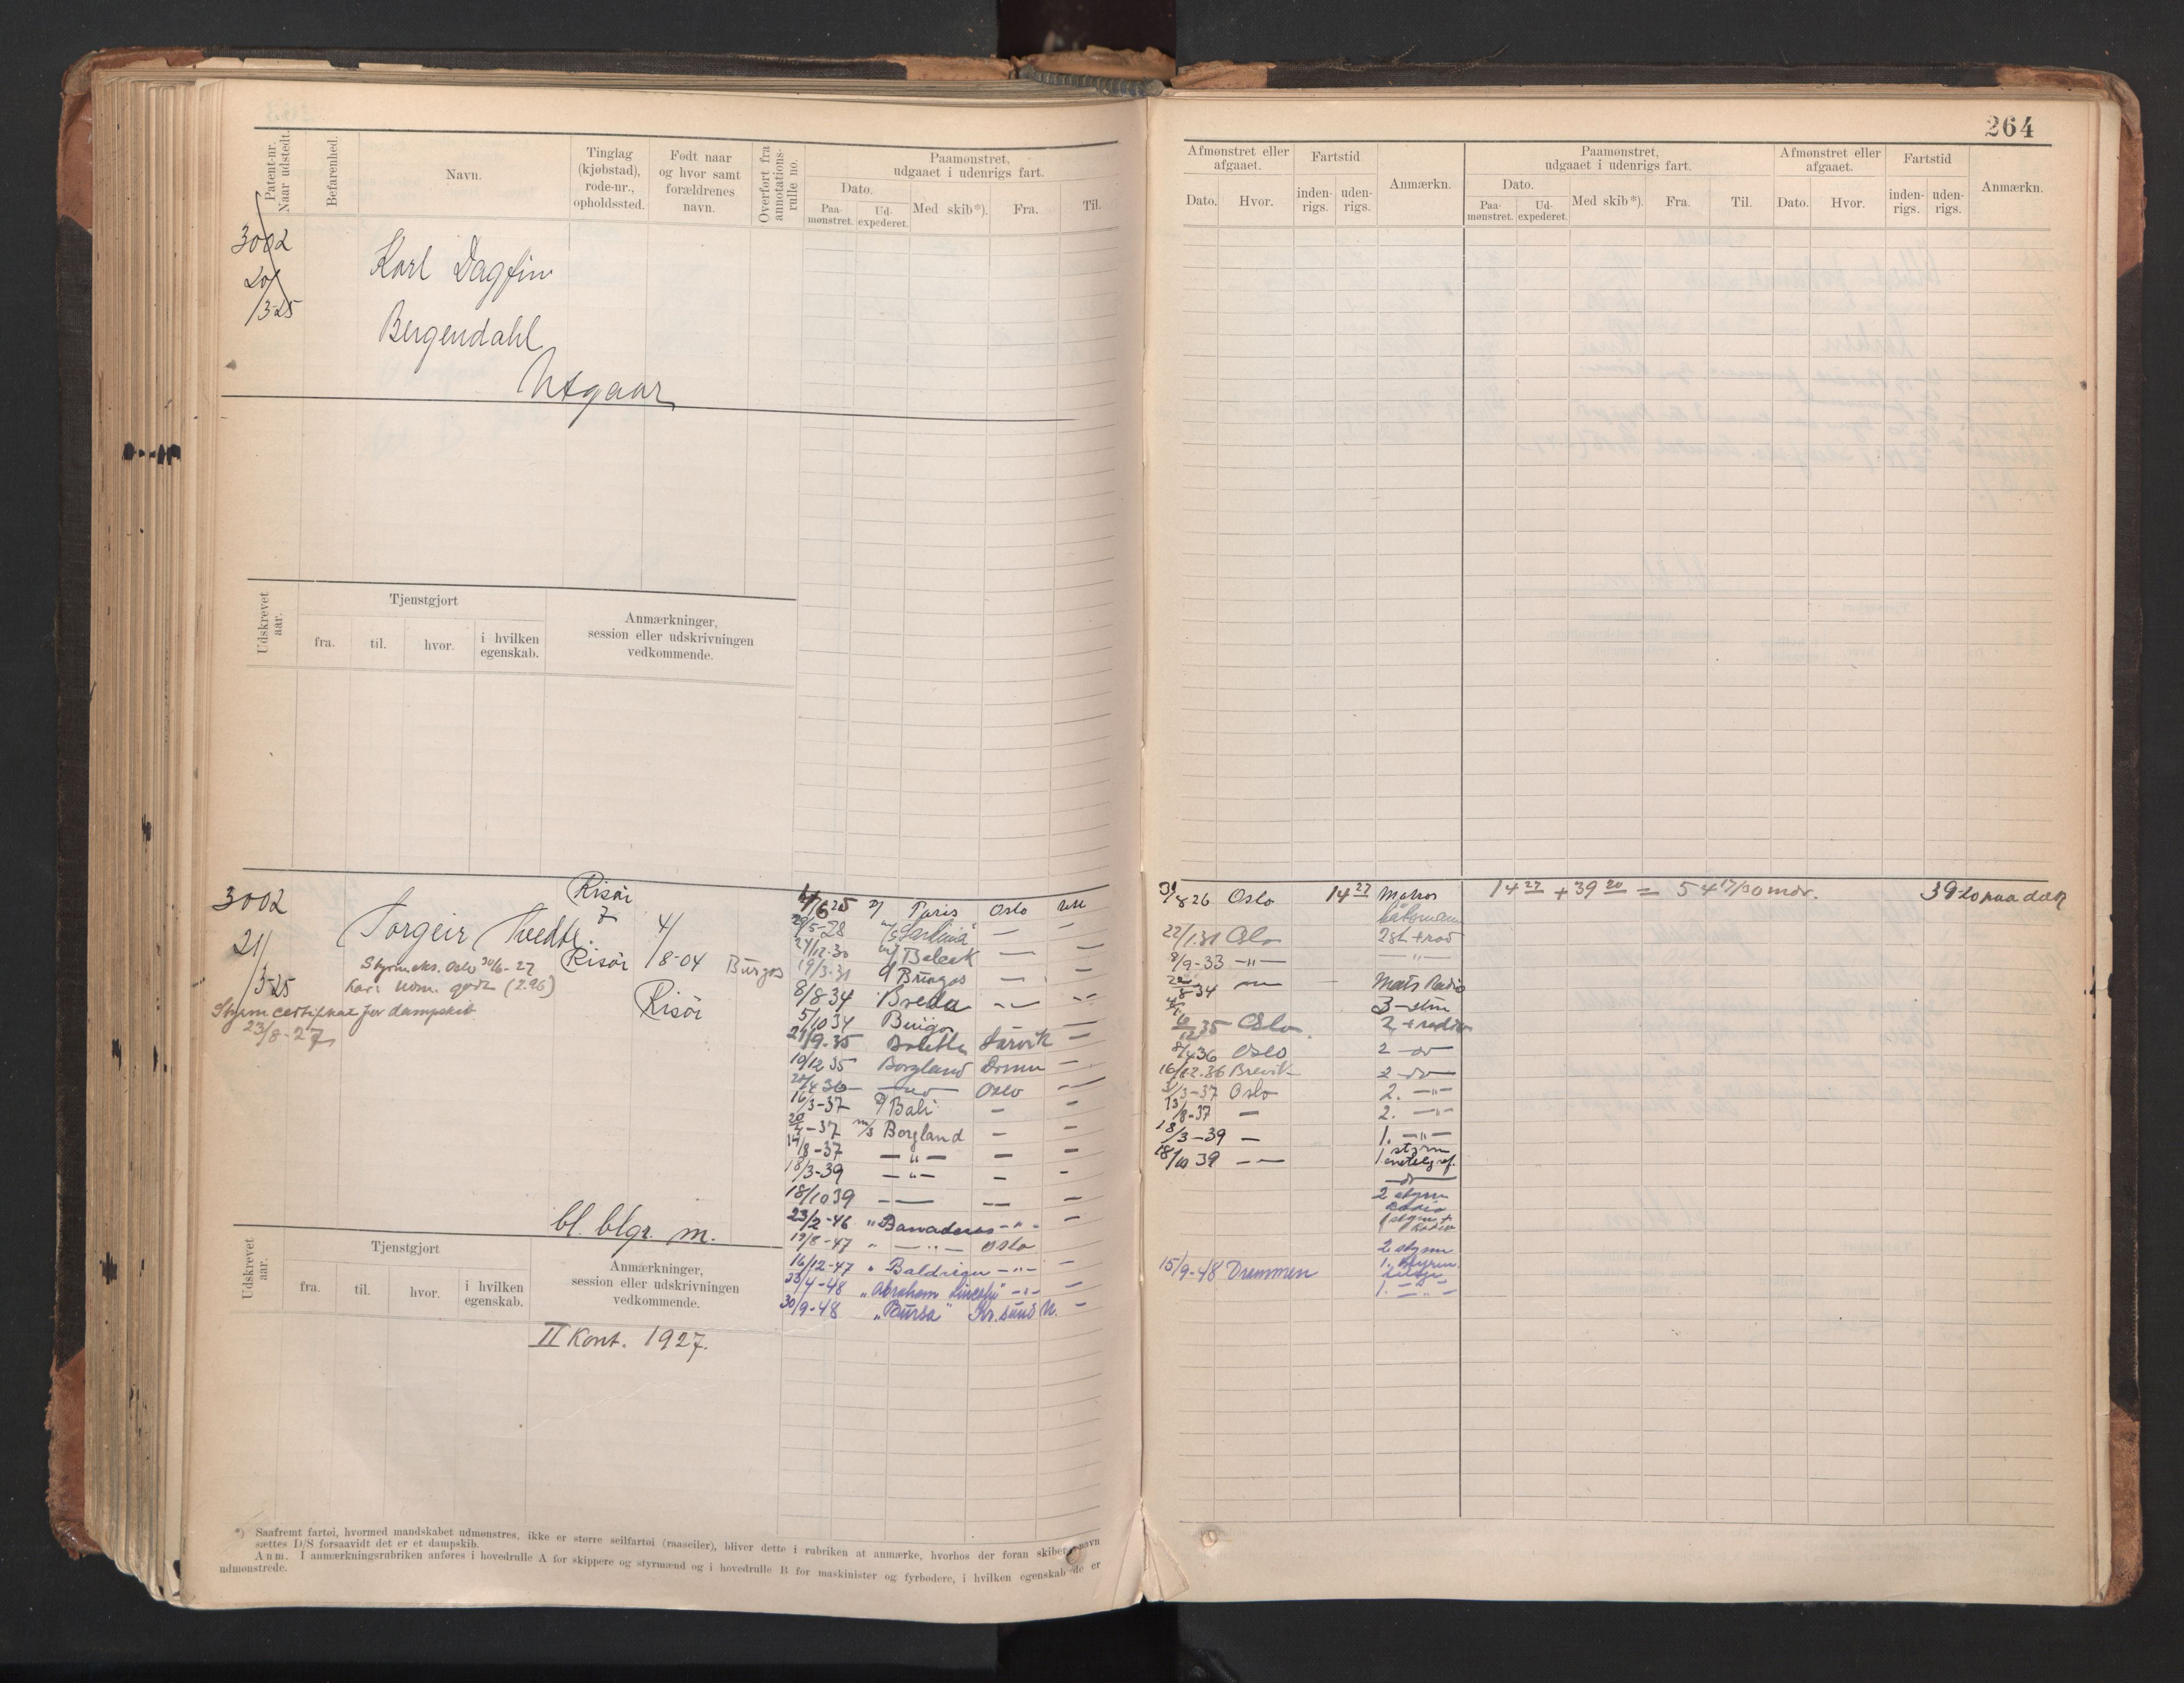 264
Patent-nr. Naar udstedt.
Befarenhed.
Navn.
Tinglag (kjøbstad), rode-nr., opholdssted.
Født naar og hvor samt forældrenes navn.
Overført fra annotations-rulle no.
Paamønstret, udgaaet i udenrigs fart.
Dato.
Paa-mønstret.
Ud-expederet.
Med skib*).
Fra.
Til.
Afmønstret eller afgaaet.
Dato.
Hvor.
Fartstid
inden-rigs.
uden-rigs.
Anmærkn.
Paamønstret, udgaaet i udenrigs fart.
Dato.
Paa-mønstret.
Ud-expederet.
Med skib*).
Fra.
Til.
Afmønstret eller afgaaet.
Dato.
Hvor.
Fartstid
inden-rigs.
uden-rigs.
Anmærkn.
3002
20/3-25
Karl Dagfin
Bergendahl
Utgaar
Udskrevet aar.
Tjenstgjort
fra.
til.
hvor.
i hvilken egenskab.
Anmærkninger, session eller udskrivningen vedkommende.
3002
21/3-25
Torgeir Tvedte.
Risör
7
Risör
4/8-04
Risör
Burgos
Styrm.eks. Oslo 30/6-27
kar: Hom. godt (2.96)
Styrm certifikat for dampskib
23/8-27
4/6 25 Paris Oslo
29/5-28
24/12-30 Belcek —
19/3-31 Burgos — —
8/8 34 Breda
5/10 34
21/9-35 Larvik —
10/12 35 Borgland —
Oslo —
16/3-37 Bali — —
20/4-37 m/s Borgland — —
14/8-37 — " — — —
18/3-39 — " — — —
18/10 39 — — —
23/2-46 " Banaderos — " — —
19/8-47 " — " — Oslo
16/12-47 " Baldrigu — " — —
23/4-48 "Abraham Lincoln" — " — —
30/9-48 "Bursa" Kr.sund N. —
31/8 26 Oslo 14 27 Matros
båtsmann
22/1.31 Oslo 2 st + rad
8/9-33 — " — — " —
Mats Radio
3-stm
35 Oslo 2 + radio
8/4 36 Oslo 2 — do
16/12.36 Brevik 2 — do
31/3-37 Oslo 2. — " —
13/8-37 — 2. — " —
18/3-39 — 1. — " —
18/10 39 — — 1 styrm
2 styrm
Radio
2 styrm
15/9-48 Drammen 1. styrm.
1. — " —
14 27 + 39 20 = 54 17/30 mdr.
39-20 paa dæk
bl. blgr. m.
Udskrevet aar.
Tjenstgjort
fra.
til.
hvor.
i hvilken egenskab.
Anmærkninger, session eller udskrivningen vedkommende.
II Kont. 1927.
*) Saafremt fartøi, hvormed mandskabet udmønstres, ikke er større seilfartøi (raaseiler), bliver dette i rubriken at anmærke, hvorhos der foran skibets navn
sættes D/S forsaavidt det er et dampskib.
Anm. I anmærkningsrubriken anføres i hovedrulle A for skippere og styrmænd og i hovedrulle B for maskinister og fyrbødere, i hvilken egenskab de er
udmønstrede.